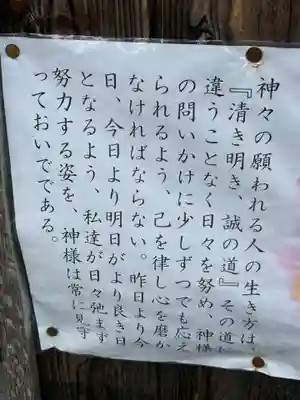 神々の願われる人の生き方は、
『清き明き、誠の道』その道に
違うことなく日々を努め、神様
の問いかけに少しずつでも応え
られるよう、己を律し心を磨か
なければならない。昨日より今
日、今日より明日がより良き日
となるよう、私達が日々弛まず
努力する姿を、神様は常に見守
っておいでである。